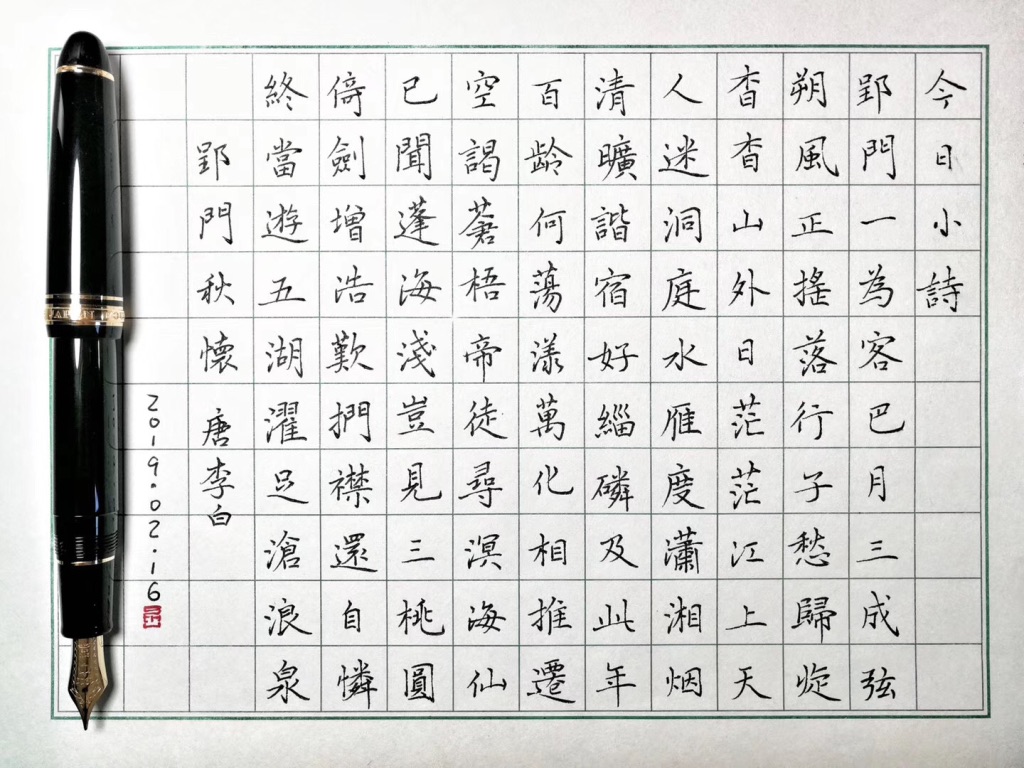 今日小詩
郢門一為客巴月三成弦
朔風正搖落行子愁歸旋
杳杳山外日茫茫江上天
人迷洞庭水雁度瀟湘烟
清曠諧宿好緇磷及此年
百齢何蕩漾萬化相推遷
空謁蒼梧帝徒尋溟海仙
已聞蓬海淺豈見三桃圓
倚劍增浩歎捫襟還自憐
終當遊五湖濯足滄浪泉
郢門秋懷 唐李白
2019.02.16